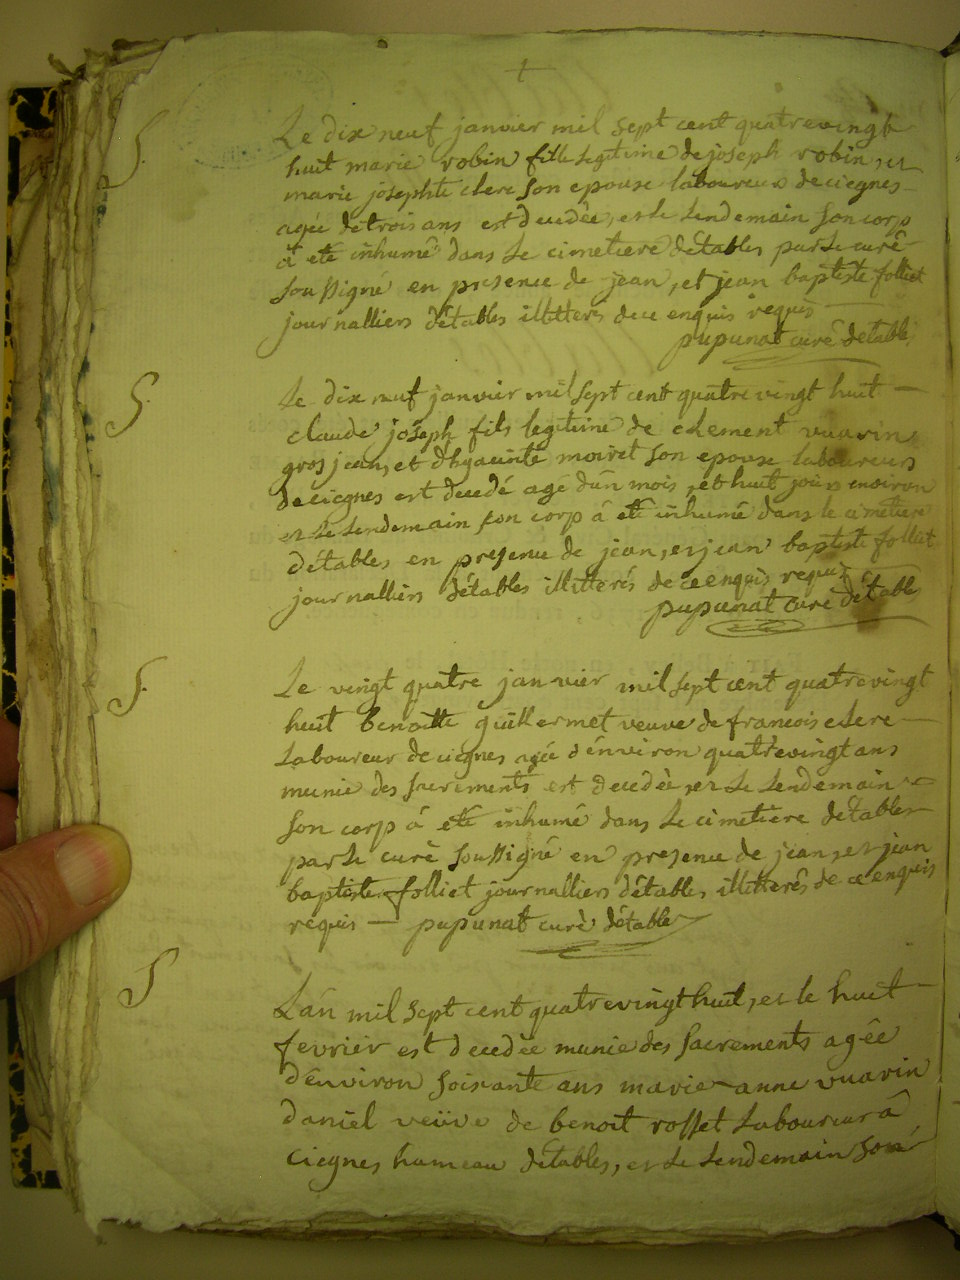 t
S.
Le dix neuf janvier mil sept cent quatrevingt
huit marie robin fille legitime de joseph robin, et
marie josephte clerc son epouse laboureurs de ciegnes
agée de trois ans est decedée, et le lendemain son corp
à eté inhumé dans le cimetiere détables par le curé
soussigné en presence de jean, et jean baptiste folliet
journalliers détables illitterés de ce enquis requis
pupunat curé détables
S.
Le dix neuf janvier mil sept cent quatre vingt huit
claude joseph fils legitime de clement vuarin
gros jean, et dhyacinte moiret son epouse laboureurs
de ciegnes est decedé agé d'un mois, et huit jours environ
et le lendemain son corp à eté inhumé dans le cimetiere
détables en presence de jean, et jean baptiste folliet
journalliers détables illitterés de ce enquis requis
pupunat curé détables
S.
Le vingt quatre janvier mil sept cent quatrevingt
huit benoitte guillermet veuve de francois clere
laboureur de ciegnes agée d'environ quatrevingt ans
munie des sacrements est decedée, et le lendemain
son corp à eté inhumé dans le cimetiere détables
par le curé soussigné en presence de jean, et jean
baptiste folliet journalliers détables illitterés de ce enquis
requis — pupunat curé détables
S
L'an mil sept cent quatrevingt huit, et le huit
fevrier est decedée munie des sacrements agée
d'environ soixante ans marie anne vuarin
daniel veüve de benoit rosset laboureur à
ciegnes hameau détables, et le lendemain son